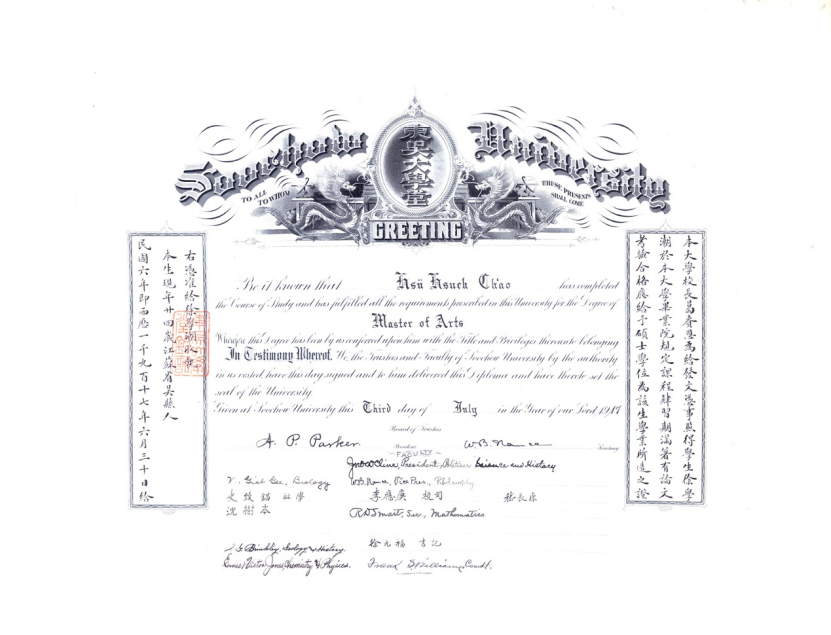 Soochow University
東吳大學堂
TO ALL TO WHOM THESE PRESENTS SHALL COME
GREETING
本大學校長為給發文憑事照得學生徐學
潮於本大學畢業院規定課程肄習期滿著有論文
考驗合格應給予碩士學位為該生學業所造之證
Be it known that Hsü Hsueh Ch'ao has completed
the Course of Study and has fulfilled all the requirements prescribed in this University for the Degree of
Master of Arts
Wherefore this Degree has been by us conferred upon him with the Title and Privileges thereunto belonging
In Testimony Whereof, We, the Trustees and Faculty of Soochow University by the authority
in us vested, have this day signed and to him delivered this Diploma and have thereto set the
seal of the University.
Given at Soochow University this Third day of July in the Year of our Lord 1917
Board of Trustees
A. P. Parker President W.B. Nance Secretary
FACULTY
Jno W Cline, President, Science and History
N. Gist Gee, Biology W.B. Nance, Vice Pres., Philosophy
李應庚
沈樹本 R.D. Smart, Sec., Mathematics
徐元福 書記
Brinkley, Geology & History
Ernest Victor Jones Chemistry & Physics. Frank
右憑准給徐學潮收執
本生現年廿四歲江蘇省吳縣人
民國六年即西歷一千九百十七年六月三十日給